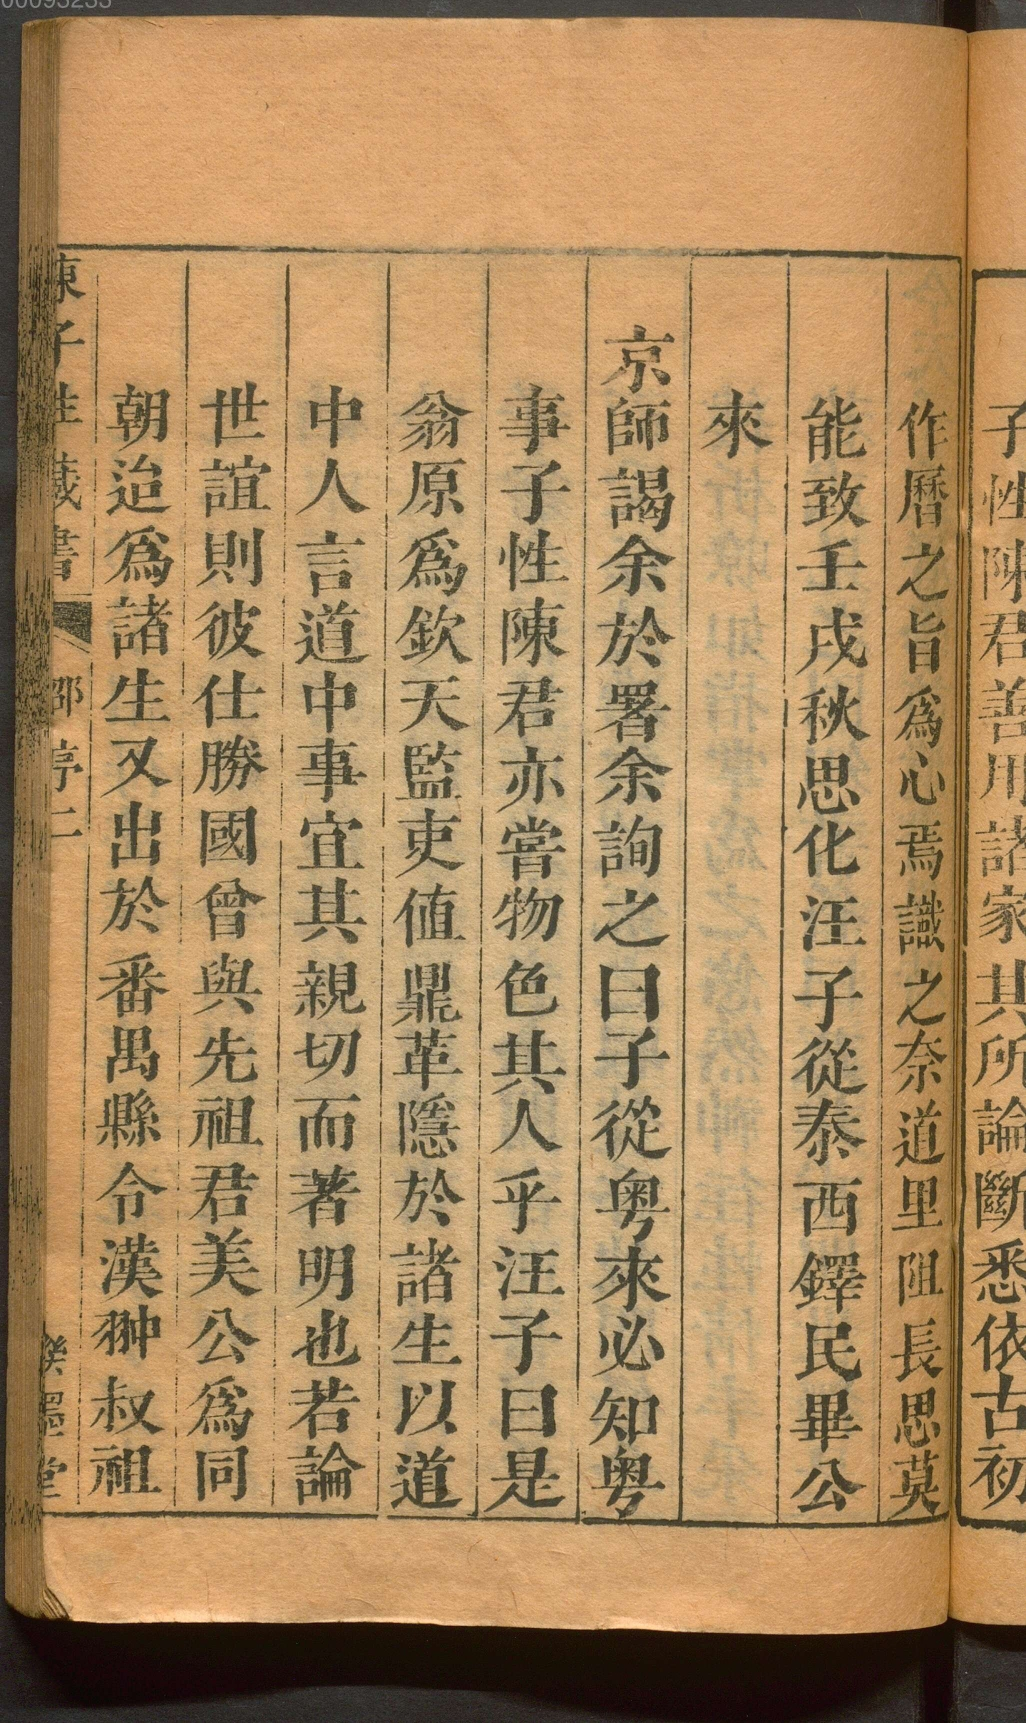 子性陳君善用諸家其所論斷悉依古初
作曆之旨爲心焉識之奈道里阻長思莫
能致壬戌秋思化汪子從泰西鐸民畢公
來
京師謁余於署余詢之曰子從粵來必知粵
事子性陳君亦嘗物色其人乎汪子曰是
翁原爲欽天監吏値鼎革隱於諸生以道
中人言道中事宜其親切而著明也若論
世誼則彼仕勝國曾與先祖君美公爲同
朝迨爲諸生又出於番禺縣令漢翀叔祖
陳子性藏書
序二
墨堂
00093233